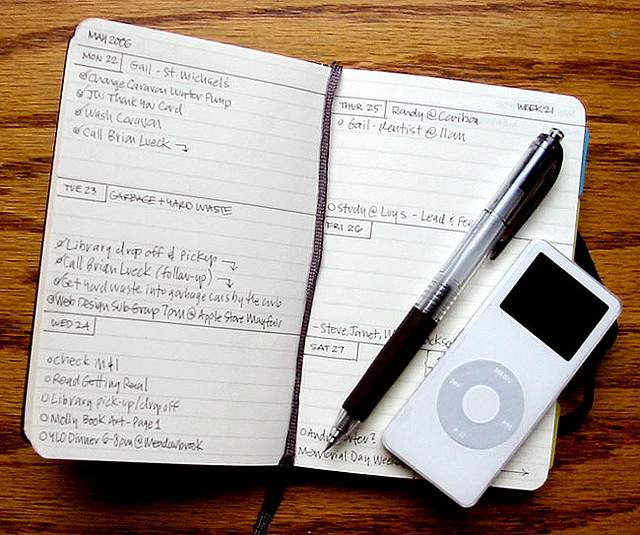 MAY 2006
MON 22 Gail - St. Michael's
Change Caravan Water Pump
JW Thank You Card
Wash Caravan
Call Brian Lueck
TUE 23 GARBAGE + YARD WASTE
Library drop off & pickup
Call Brian Lueck (follow-up)
Get yard waste into garbage cans by the curb
Web Design Sub-Group 7pm @ Apple Store Mayfair
WED 24
check M+I
Read Getting Real
Library pick-up/drop off
Molly Book Art - Page 1
YLO Dinner 6-8pm @ Meadowbrook
WEEK 21
THUR 25 Randy @ Caribou
Gail - dentist @ 11am
Study @ Luy's - Lead &
FRI 26
- Steve, Janet,
SAT 27
Memorial Day
MENU